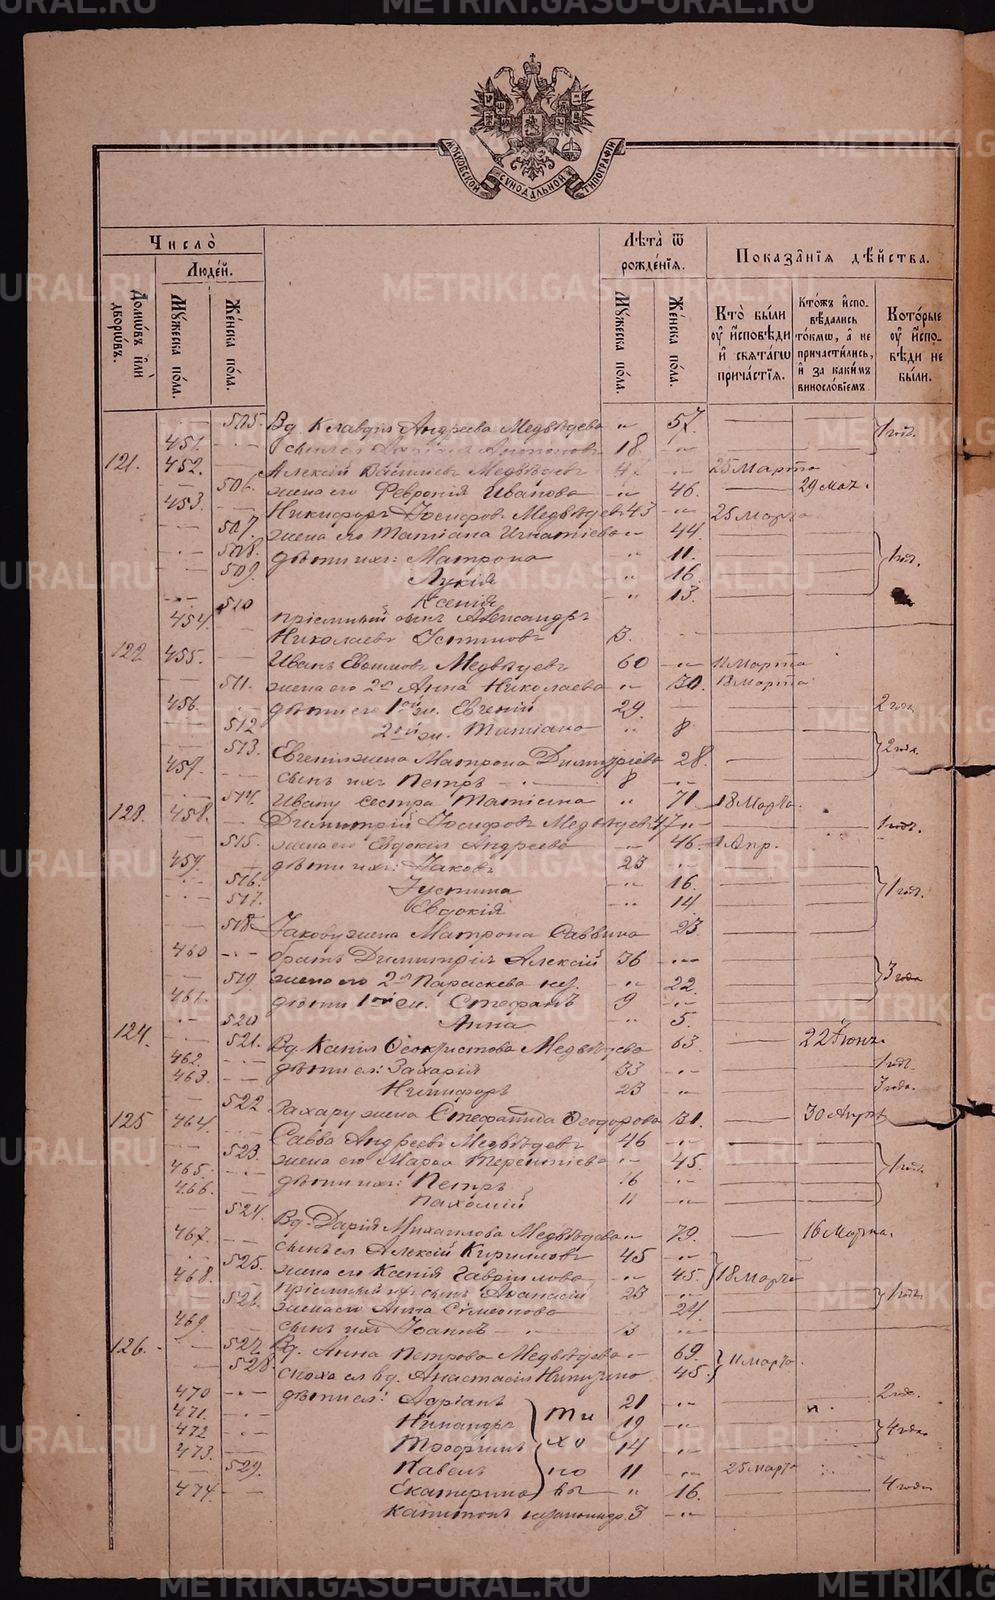 METRIKI.GASO-URAL.RU
МОСКОВСКОЙ СѴНОДАЛЬНОЙ ТИПОГРАФІИ
Число̀
Людéй.
Домѡ́въ и҆лѝ дворѡ́въ.
Мꙋ́жеска по́ла.
Же́нска по́ла.
Лѣ́та ѿ рожде́нїѧ.
Мꙋ́жеска по́ла.
Же́нска по́ла.
Показа̑нїѧ дѣ́йства.
Кто̀ бы́ли ᲂу҆ и҆́сповѣди и҆ свѧта́гѡ прича́стїѧ.
Кто́жъ и҆спо- вѣ́дались то́кмѡ, а҆ не причасти́лись, и҆ за каки́мъ винослові́емъ.
Кото́рые ᲂу҆ и҆́спо- вѣди не бы́ли.
505. Вд. Клавдія Андреева Медвѣдева " 57. 1 годъ.
451. сынъ ея Антоновъ 18
121. 452. Алексій Василіевъ Медвѣдевъ 25 Марта
506. жена его Февронія Иванова " 46. 29 мая.
453. Никифоръ Іосифов. Медвѣдевъ 43 25 Марта
507. жена его Татіана Игнатіева 44.
508. дѣти ихъ: Матрона " 11. 1 год.
509. Лукія " 16.
510 Ксенія " 13.
454. пріемный сынъ Александръ
Николаевъ Устиновъ 3.
122 455. Иванъ Евѳимовъ Медвѣдевъ 60 11 Марта
511. жена его 2я Анна Николаева " 50. 18 Марта
456. дѣти его 1ой ж. Евгеній 29. 2 года
512 2ой ж. Татіана " 8 2 года.
513. Евгенія жена Матрона Димитріева 28.
457. сынъ ихъ Петръ 8
514. Ивану сестра Татіана " 71 18 Марта.
123. 458. Димитрій Іосифовъ Медвѣдевъ 47 1 годъ.
515. жена его Евдокія Андреева 46. 1 Апр.
459. дѣти ихъ: Іаковъ 23
516. Іустина " 16. 1 год.
517. Евдокія " 14
518. Іакову жена Матрона Саввина 23
460 братъ Димитрія Алексій 36
519. жена его 2я Параскева " 22. 3 года
461. дѣти 1ой ж. Стефанъ 9
520 Анна " 5.
124. 521. Вд. Ксенія Ѳеоктистова Медвѣдева 63 22 Іюня.
462. дѣти ея: Захарія 33 1 год.
463. Никифоръ 23 3 года.
522 Захару жена Стефанида Ѳеодорова 31. 30 Апрѣ
125 464. Савва Андреевъ Медвѣдевъ 46
523. жена его Марѳа Терентіева 45. 1 год.
465. дѣти ихъ: Петръ 16
466. Пахомій 11
524. Вд. Дарія Михаилова Медвѣдева 79. 16 Марта.
467. сынъ ея Алексій Кирилловъ 45
525. жена его Ксенія Гавріилова 45. 18 Марта
468. пріемный сынъ Аѳанасій 23 1 год.
526. жена его Анна Симеонова 24.
469. сынъ ихъ Іоаннъ 3
126. 527. Вд. Анна Петрова Медвѣдева 69. 11 Марта.
528 сноха ея вд. Анастасія Никитина 45.
470 дѣти ея: Адріанъ 21 2 год.
471. Никандръ 19
472 Трофимъ 14 4 года
473. Павелъ 11 25 Марта
529. Екатерина " 16. 4 года
Тихоновы
474. Капитонъ 3